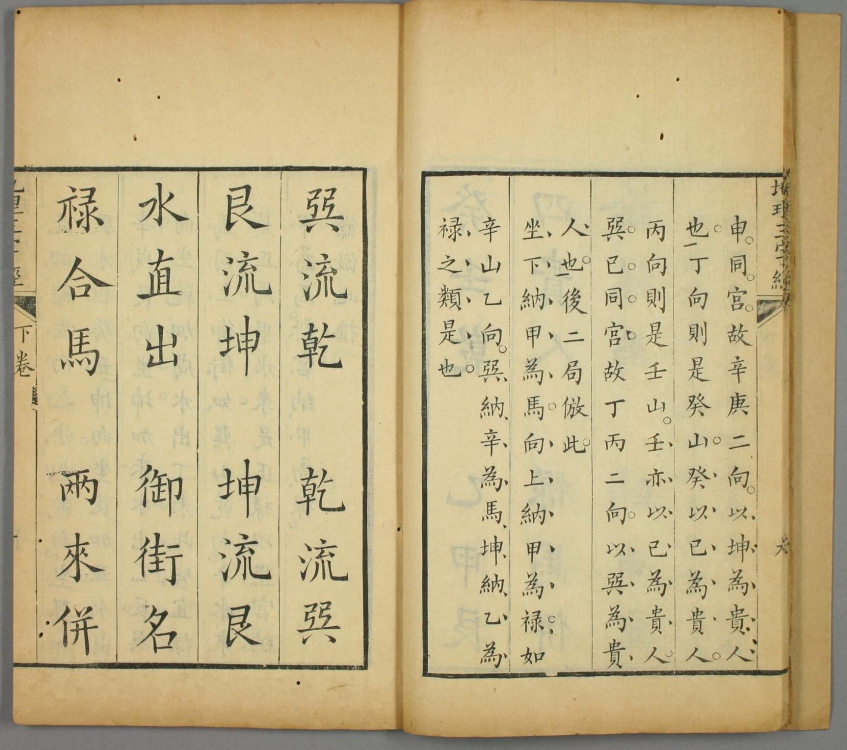 地理三字經
申同宮故辛庚二向以坤為貴人
也丁向則是癸山癸以巳為貴人
丙向則是壬山壬亦以巳為貴人
巽巳同宮故丁丙二向以巽為貴
人也後二局倣此
坐下納甲為馬向上納甲為禄如
辛山乙向巽納辛為馬坤納乙為
禄之類是也
巽流乾 乾流巽
艮流坤 坤流艮
水直出 御街名
禄合馬 兩來併
地理三字經 下卷